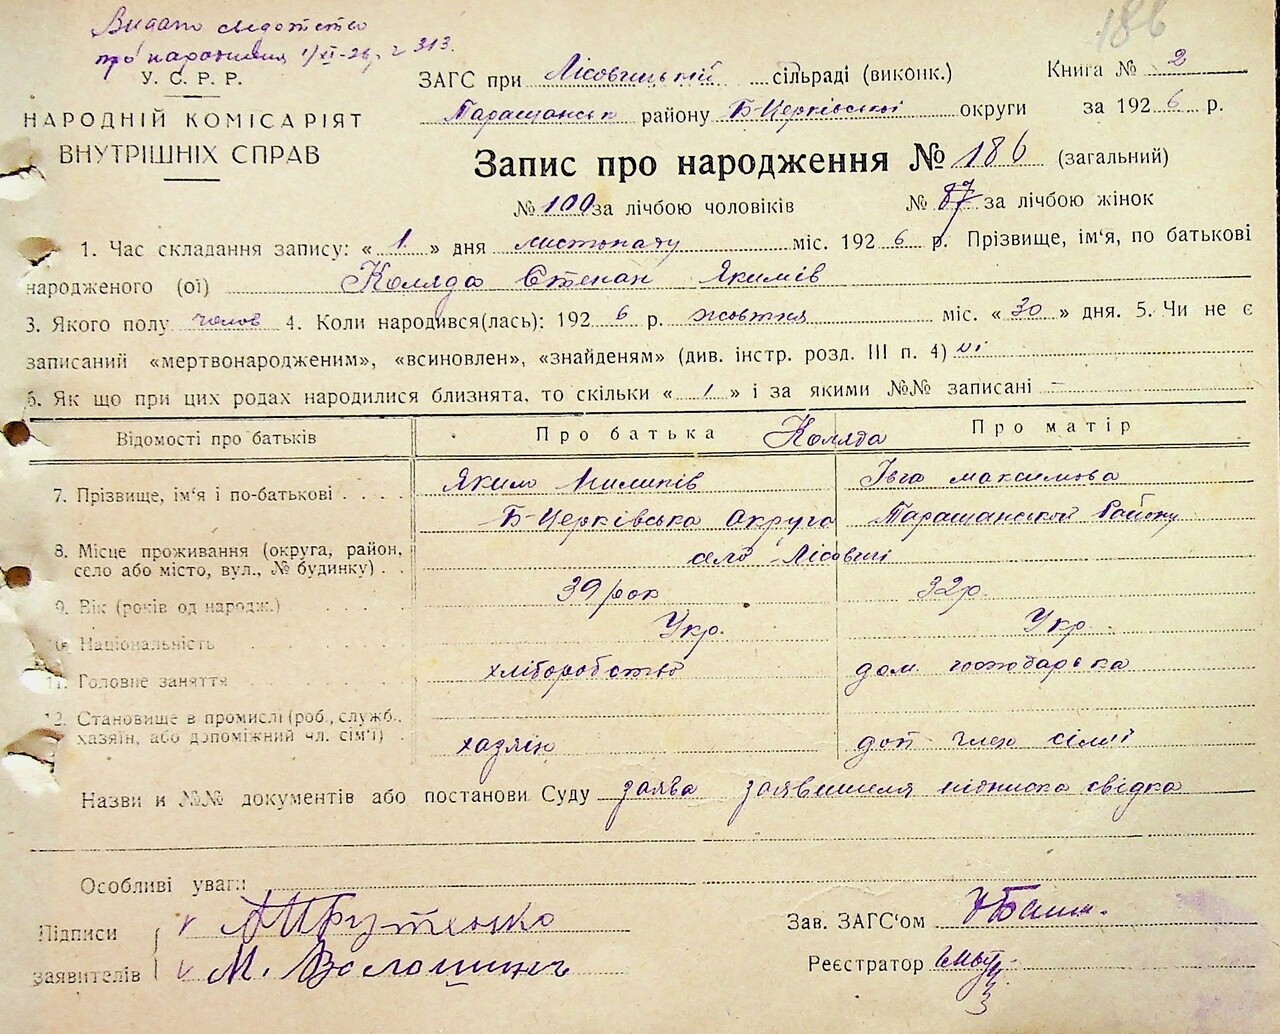 Видано свідоцтво
про народження 1/XI-26 р. № 313.
186
У. С. Р. Р.
НАРОДНІЙ КОМІСАРІЯТ
ВНУТРІШНІХ СПРАВ
ЗАГС при Лісовицькій сільраді (виконк.) Книга № 2
Таращанськ району Б-Церківської округи за 1926 р.
Запис про народження № 186 (загальний)
№ 100 за лічбою чоловіків № 87 за лічбою жінок
1. Час складання запису: « 1 » дня листопаду міс. 1926 р. Прізвище, ім'я, по батькові
народженого (ої) Коляда Степан Якимів
3. Якого полу чолов 4. Коли народився(лась): 1926 р. жовтня міс. « 30 » дня. 5. Чи не є
записаний «мертвонародженим», «всиновлен», «знайденям» (див. інстр. розд. III п. 4) ні
6. Як що при цих родах народилися близнята, то скільки « 1 » і за якими №№ записані —
Відомості про батьків Про батька Коляда Про матір
7. Прізвище, ім'я і по-батькові Яким Пилипів Івга Максимова
Б-Церківська Округа Таращанской Району
8. Місце проживання (округа, район,
село або місто, вул., № будинку) село Лісовичі
9. Вік (років од народж.) 39 рок 32 р.
10. Національність Укр. Укр.
11. Головне заняття хліборобство дом. господарька
12. Становище в промислі (роб., служб.,
хазяїн, або допоміжний чл. сім'ї) хазяїн доп член сімї
Назви и №№ документів або постанови Суду заява заявителя підписка свідка
Особливі уваги
Підписи
заявителів
М. Волошинъ
Зав. ЗАГС'ом
Реєстратор